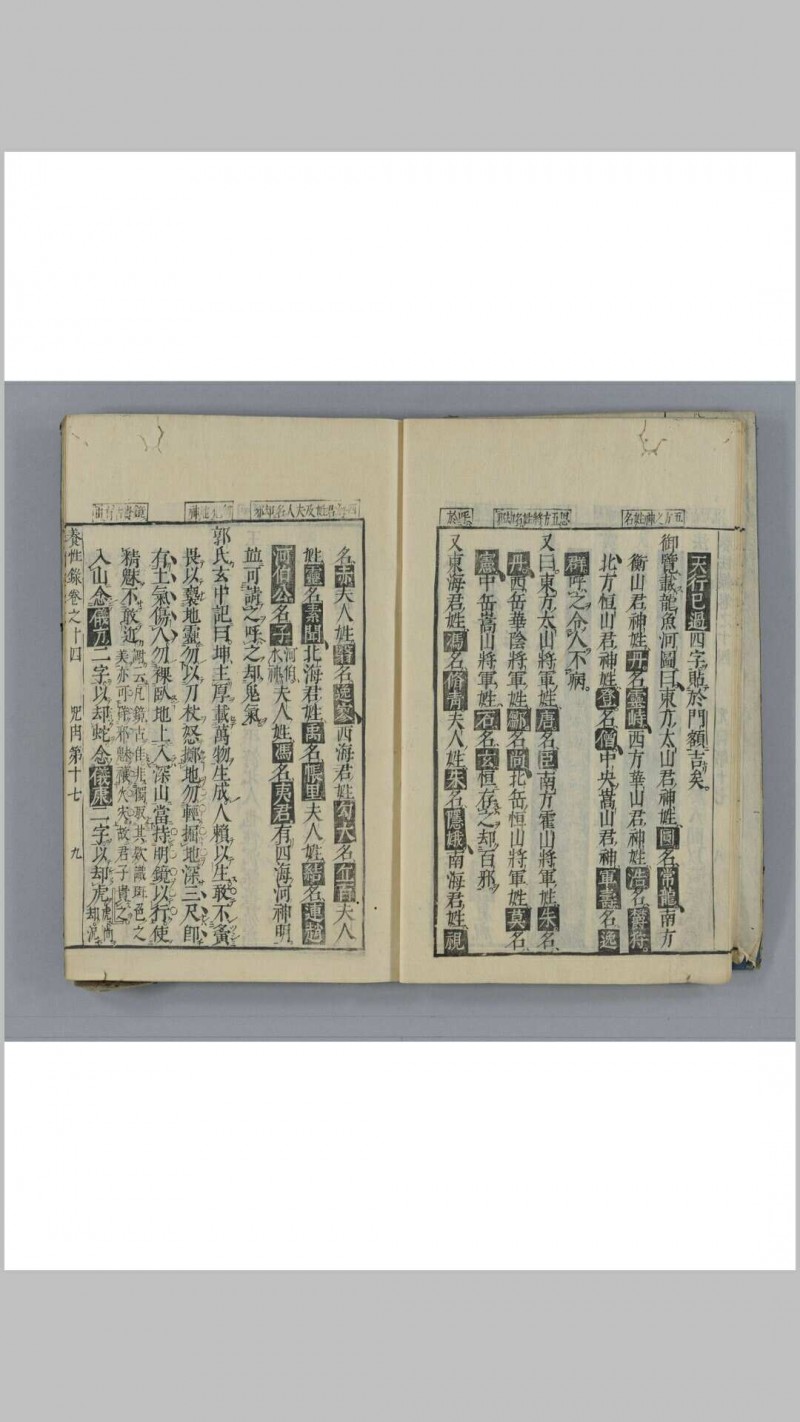 五方之神姓名
天行已過四字貼於門額吉矣
御覽載龍魚河圖曰東方太山君神姓圓名常龍南方
衡山君神姓丹名靈峙西方華山君神姓浩名欝狩
北方恒山君神姓登名僧中央嵩山君神軍壽名逸
群呼之令人不病
又曰東方太山將軍姓唐名臣南方霍山將軍姓朱名
丹西岳華陰將軍姓鄒名尚北岳恒山將軍姓莫名
惠中岳嵩山將軍姓石名玄恒存之却百邪
又東海君姓馮名脩青夫人姓朱名隱娥南海君姓視
名赤夫人姓翳名逸寥西海君姓勾大名丘百夫人
姓靈名素聞北海君姓禹名帳里夫人姓結名連翹
河伯公名子河伯水神夫人姓馮名夷君有四海河神明
並可請之呼之却鬼氣
郭氏玄中記曰坤主厚載萬物生成人賴以生敢不
畏以褻地靈勿以刀杖怒擲地勿輕掘地深三尺即
有土氣傷人勿裸臥地上入深山當持明鏡以行使
精魅不敢近
入山念儀方二字以却蛇念儀康二字以却虎
養性錄卷之十四 咒 第十七 九